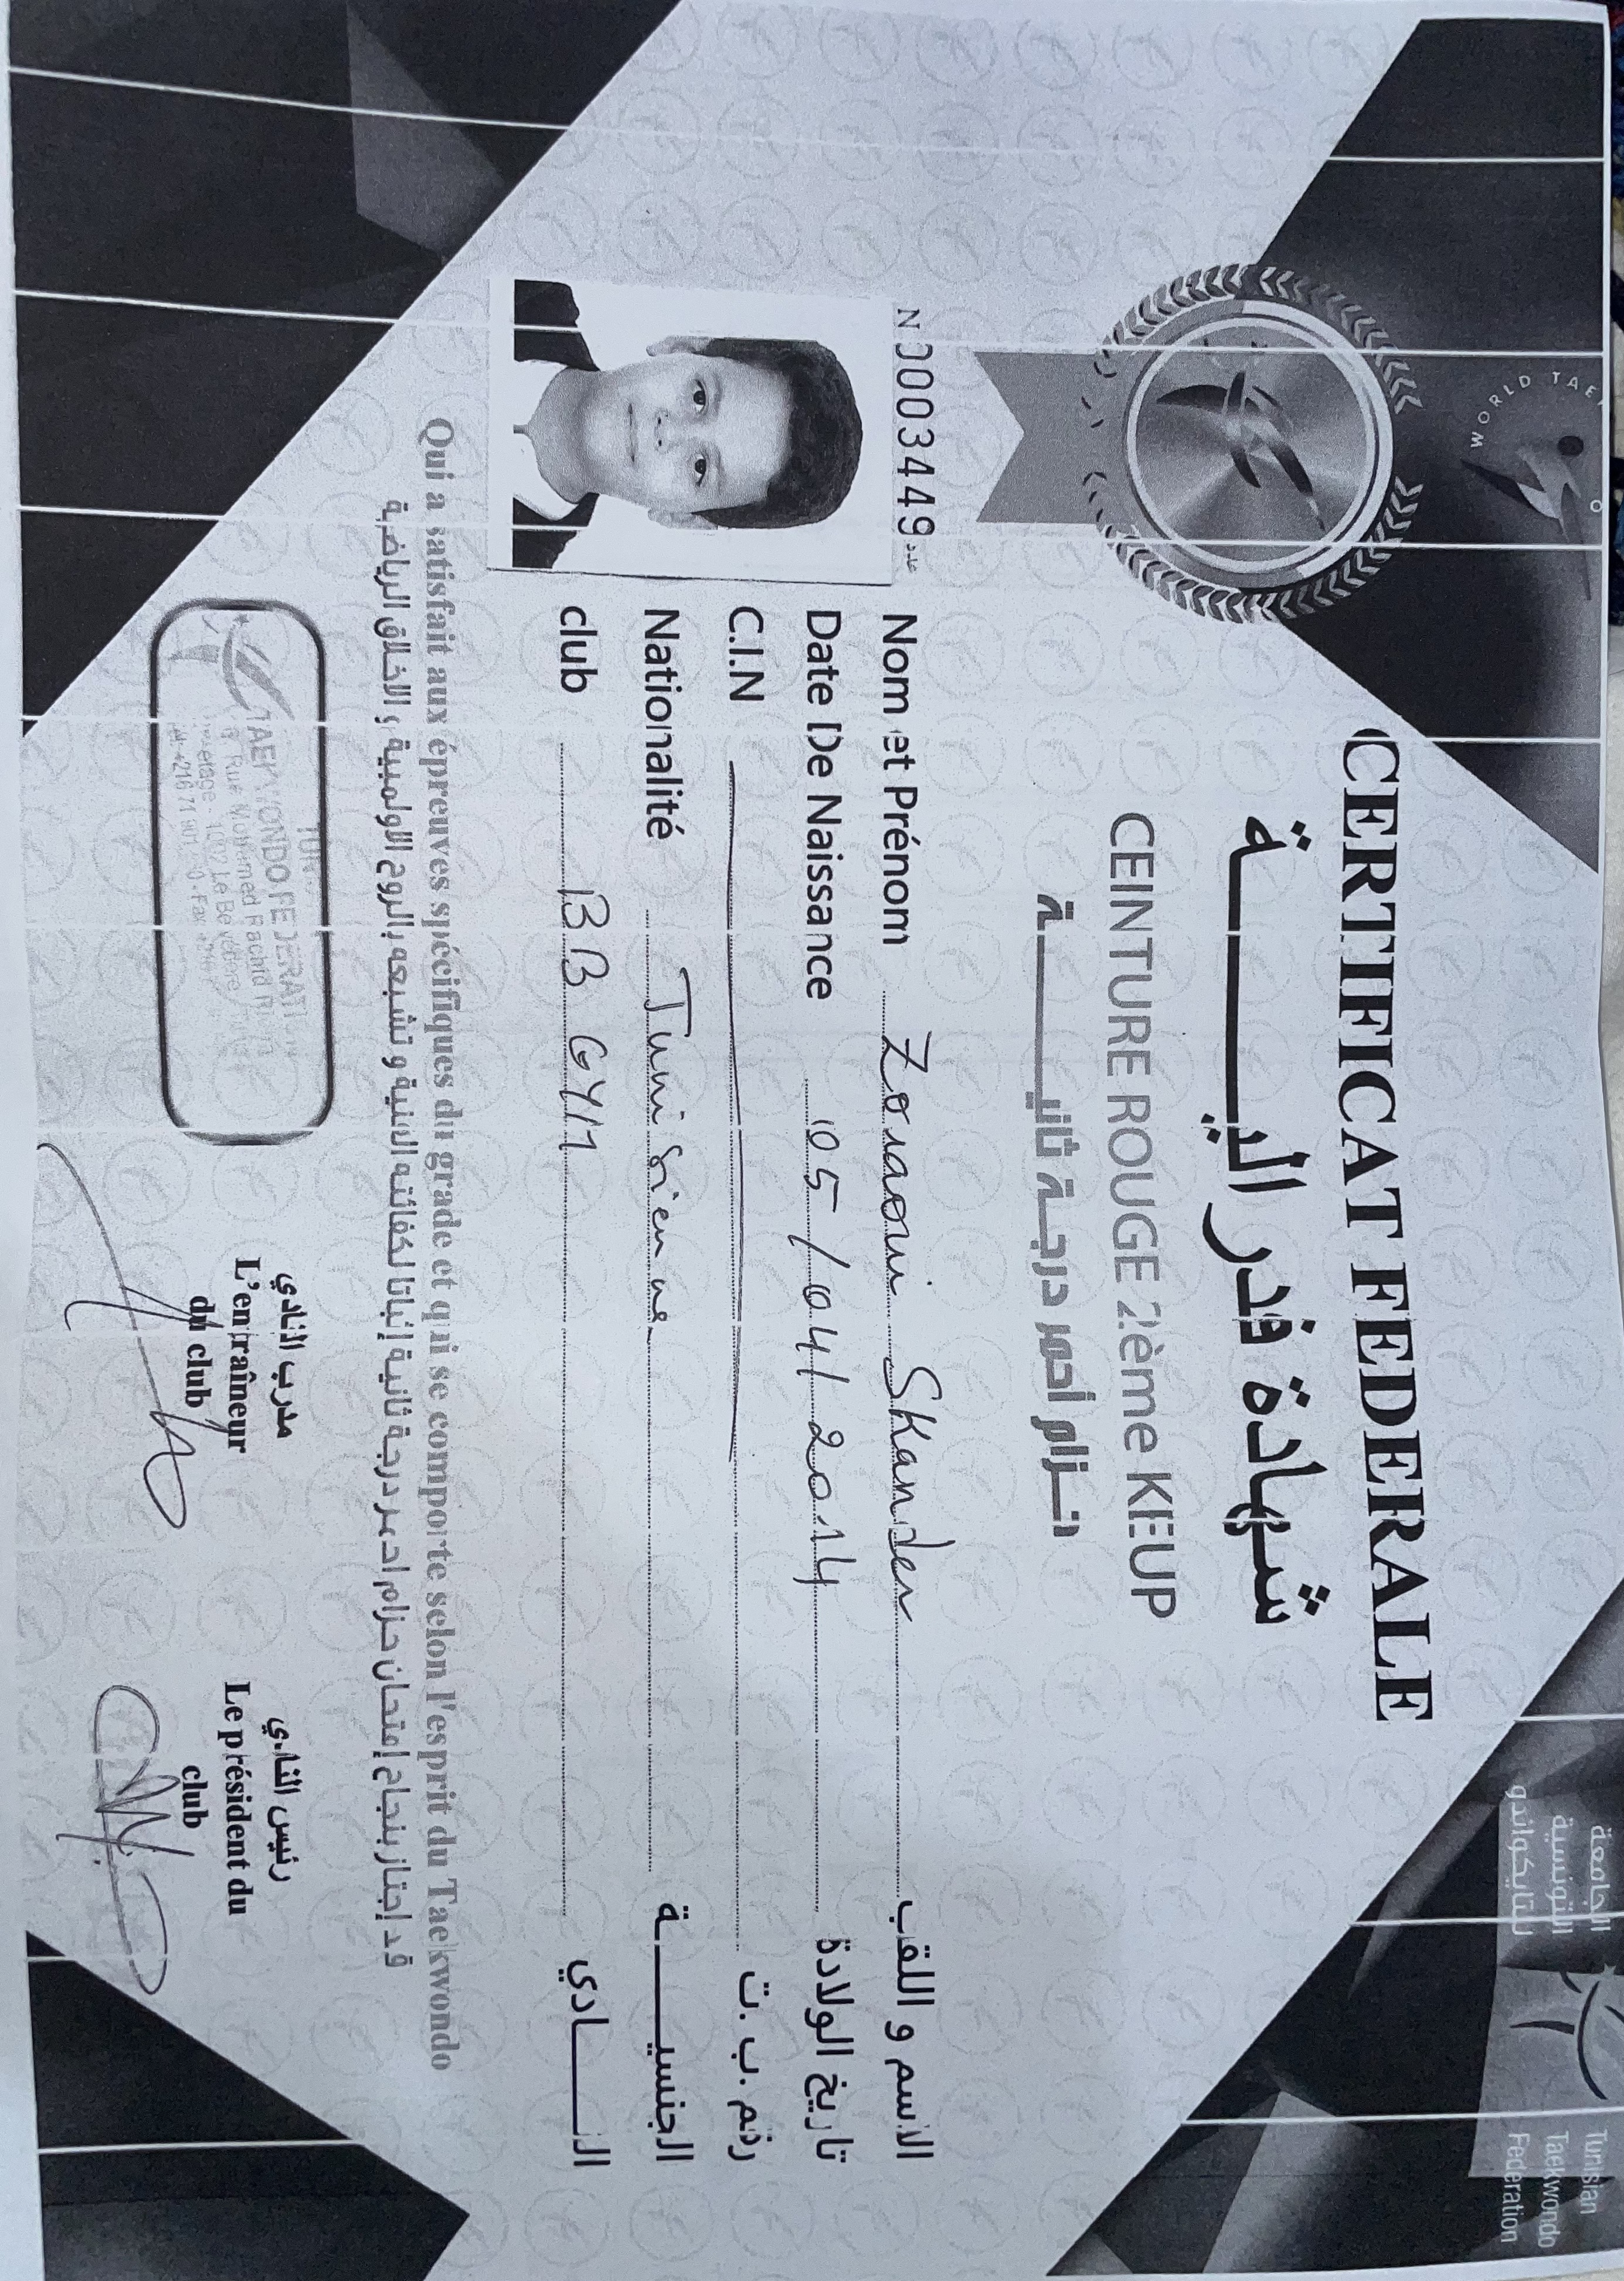 WORLD TAE
الجامعة
التونسية
للتايكواندو
Tunisian
Taekwondo
Federation
CERTIFICAT FEDERALE
شهادة فدراليـــــــة
CEINTURE ROUGE 2ème KEUP
حـزام أحمر درجـة ثانيـــــــة
N 0003449 عدد
Nom et Prénom Zouaoui Skander الاسم و اللقب
Date De Naissance 05/04/2014 تاريخ الولادة
C.I.N رقم ب. ت.
Nationalité Tunisienne الجنسيـــــــة
club BB GYM النـــــادي
Qui a satisfait aux épreuves spécifiques du grade et qui se comporte selon l'esprit du Taekwondo
قد إجتاز بنجاح إمتحان حزام احمر درجة ثانية إثباتا لكفائته الفنية و تشبعه بالروح الاولمبية و الاخلاق الرياضية
TAEKWONDO FEDERATION
Rue Mohamed Rachid
etage 1002 Le Belvédère
مدرب النادي
L'entraîneur
du club
رئيس النادي
Le président du
club